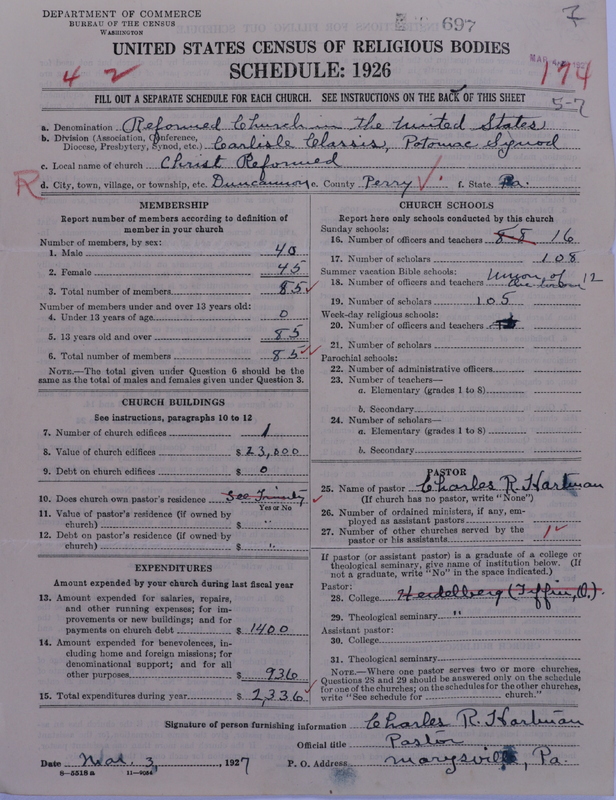 DEPARTMENT OF COMMERCE
BUREAU OF THE CENSUS
WASHINGTON
697
7
UNITED STATES CENSUS OF RELIGIOUS BODIES
SCHEDULE: 1926
4 2
174
FILL OUT A SEPARATE SCHEDULE FOR EACH CHURCH. SEE INSTRUCTIONS ON THE BACK OF THIS SHEET
5-7
a. Denomination Reformed Church in the United States
b. Division (Association, Conference, Diocese, Presbytery, Synod, etc.) Carlisle Classis, Potomac Synod
c. Local name of church Christ Reformed
R d. City, town, village, or township, etc. Duncannon e. County Perry f. State Pa.
MEMBERSHIP
Report number of members according to definition of
member in your church
Number of members, by sex:
1. Male 40
2. Female 45
3. Total number of members 85
Number of members under and over 13 years old:
4. Under 13 years of age 0
5. 13 years old and over 85
6. Total number of members 85
NOTE.—The total given under Question 6 should be
same as the total of males and females given under Question 3.
CHURCH BUILDINGS
See instructions, paragraphs 10 to 12
7. Number of church edifices 1
8. Value of church edifices $ 23,000
9. Debt on church edifices $ 0
10. Does church own pastor's residence See Trinity
Yes or No
11. Value of pastor's residence (if owned by
church) $ "
12. Debt on pastor's residence (if owned by
church) $ "
EXPENDITURES
Amount expended by your church during last fiscal year
13. Amount expended for salaries, repairs,
and other running expenses; for im-
provements or new buildings; and for
payments on church debt $ 1400
14. Amount expended for benevolences, in-
cluding home and foreign missions; for
denominational support; and for all
other purposes $ 936
15. Total expenditures during year $ 2,336
CHURCH SCHOOLS
Report here only schools conducted by this church
Sunday schools:
16. Number of officers and teachers 88 16
17. Number of scholars 108
Summer vacation Bible schools:
18. Number of officers and teachers Union of the town 12
19. Number of scholars 105
Week-day religious schools:
20. Number of officers and teachers
21. Number of scholars
Parochial schools:
22. Number of administrative officers
23. Number of teachers—
a. Elementary (grades 1 to 8)
b. Secondary
24. Number of scholars—
a. Elementary (grades 1 to 8)
b. Secondary
PASTOR
25. Name of pastor Charles R. Hartman
(If church has no pastor, write "None")
26. Number of ordained ministers, if any, em-
ployed as assistant pastors
27. Number of other churches served by the
pastor or his assistants 1
If pastor (or assistant pastor) is a graduate of a college or
theological seminary, give name of institution below. (If
not a graduate, write "No" in the space indicated.)
Pastor:
28. College Heidelberg (Tiffin, O.)
29. Theological seminary "
Assistant pastor:
30. College
31. Theological seminary
NOTE.—Where one pastor serves two or more churches,
Questions 28 and 29 should be answered only on the schedule
for one of the churches; on the schedules for the other churches,
write "See schedule for church."
Signature of person furnishing information Charles R. Hartman
Official title Pastor
Date Mar. 3, 1927 P. O. Address Marysville, Pa.
8-5518a 11-9054